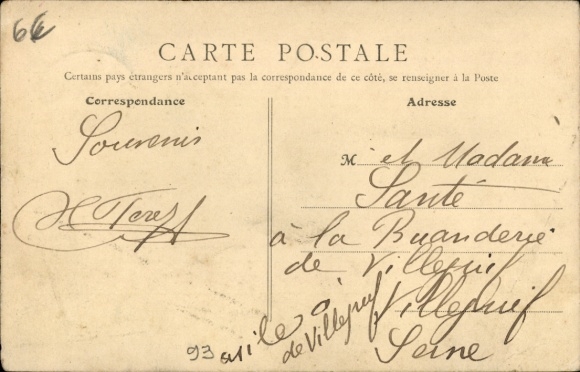 6€
CARTE POSTALE
Certains pays étrangers n'acceptant pas la correspondance de ce côté, se renseigner à la Poste
Correspondance
Adresse
Souvenir
M et Madame
Santé
à la Buanderie
de Villejuif
Villejuif
Seine
93 asile
de Villejuif